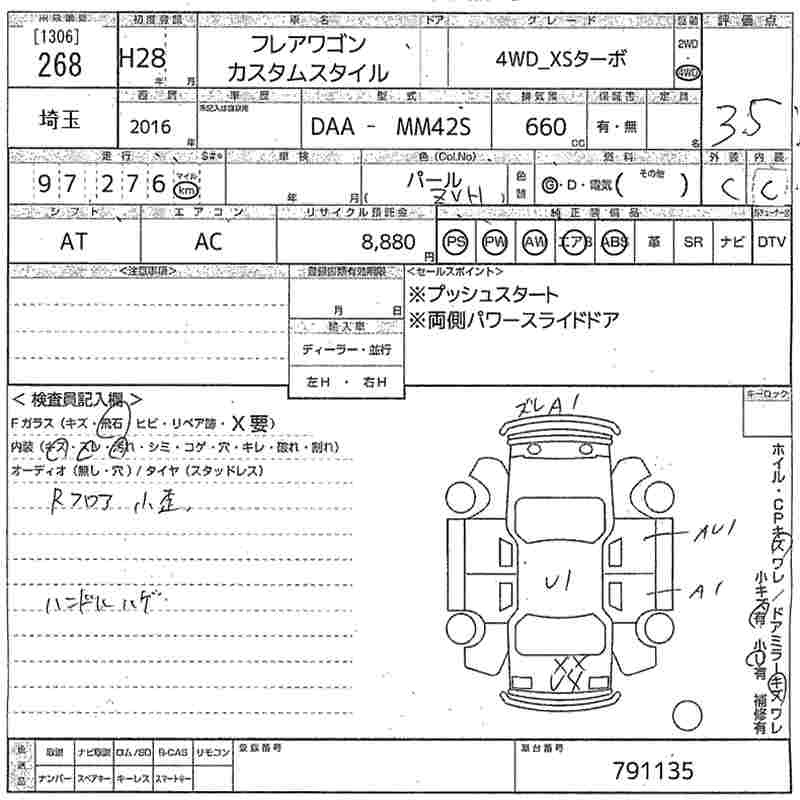 出品番号 初度登録 車名 ドア グレード 駆動 評価点
[1306]
268
H28 年 月
フレアワゴン
カスタムスタイル
4WD_XSターボ
2WD
4WD
3.5
埼玉
西暦 車歴 未記入は自家用 型式 排気量 保証書 定員
2016 年
DAA - MM42S
660 cc
有・無
名
走行 S#* 車検 色(Col.No) 燃料 外装 内装
97276 マイル km
年 月
パール
( ZVH )
色替
G・D・電気( その他 )
C C
シフト エアコン リサイクル預託金 純正装備品
AT AC 8,880 円
PS PW AW エアB ABS 革 SR ナビ DTV
<注意事項> 登録書類有効期限 <セールスポイント>
月 日
※プッシュスタート
※両側パワースライドドア
輸入車
ディーラー・並行
左H ・ 右H
< 検査員記入欄 >
Fガラス(キズ・飛石 ヒビ・リペア跡・X要)
内装(キズ・スレ・汚れ・シミ・コゲ・穴・キレ・破れ・割れ)
オーディオ(無し・穴)/タイヤ(スタッドレス)
Rフロア 小歪
ハンドルハゲ
ズレA1
AU1
U1
A1
XX
U4
キーロック
ホイル・CPキズワレ/ドアミラーキズワレ
小キズ有 小U有 補修有
後送品
取説 ナビ取説 ロム/SD B-CAS リモコン
ナンバー スペアキー キーレス スマートキー
登録番号
車台番号
791135